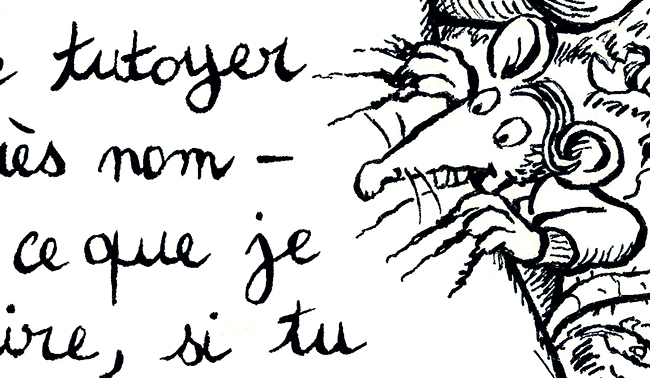 tutoyer
nom -
ce que je
si tu